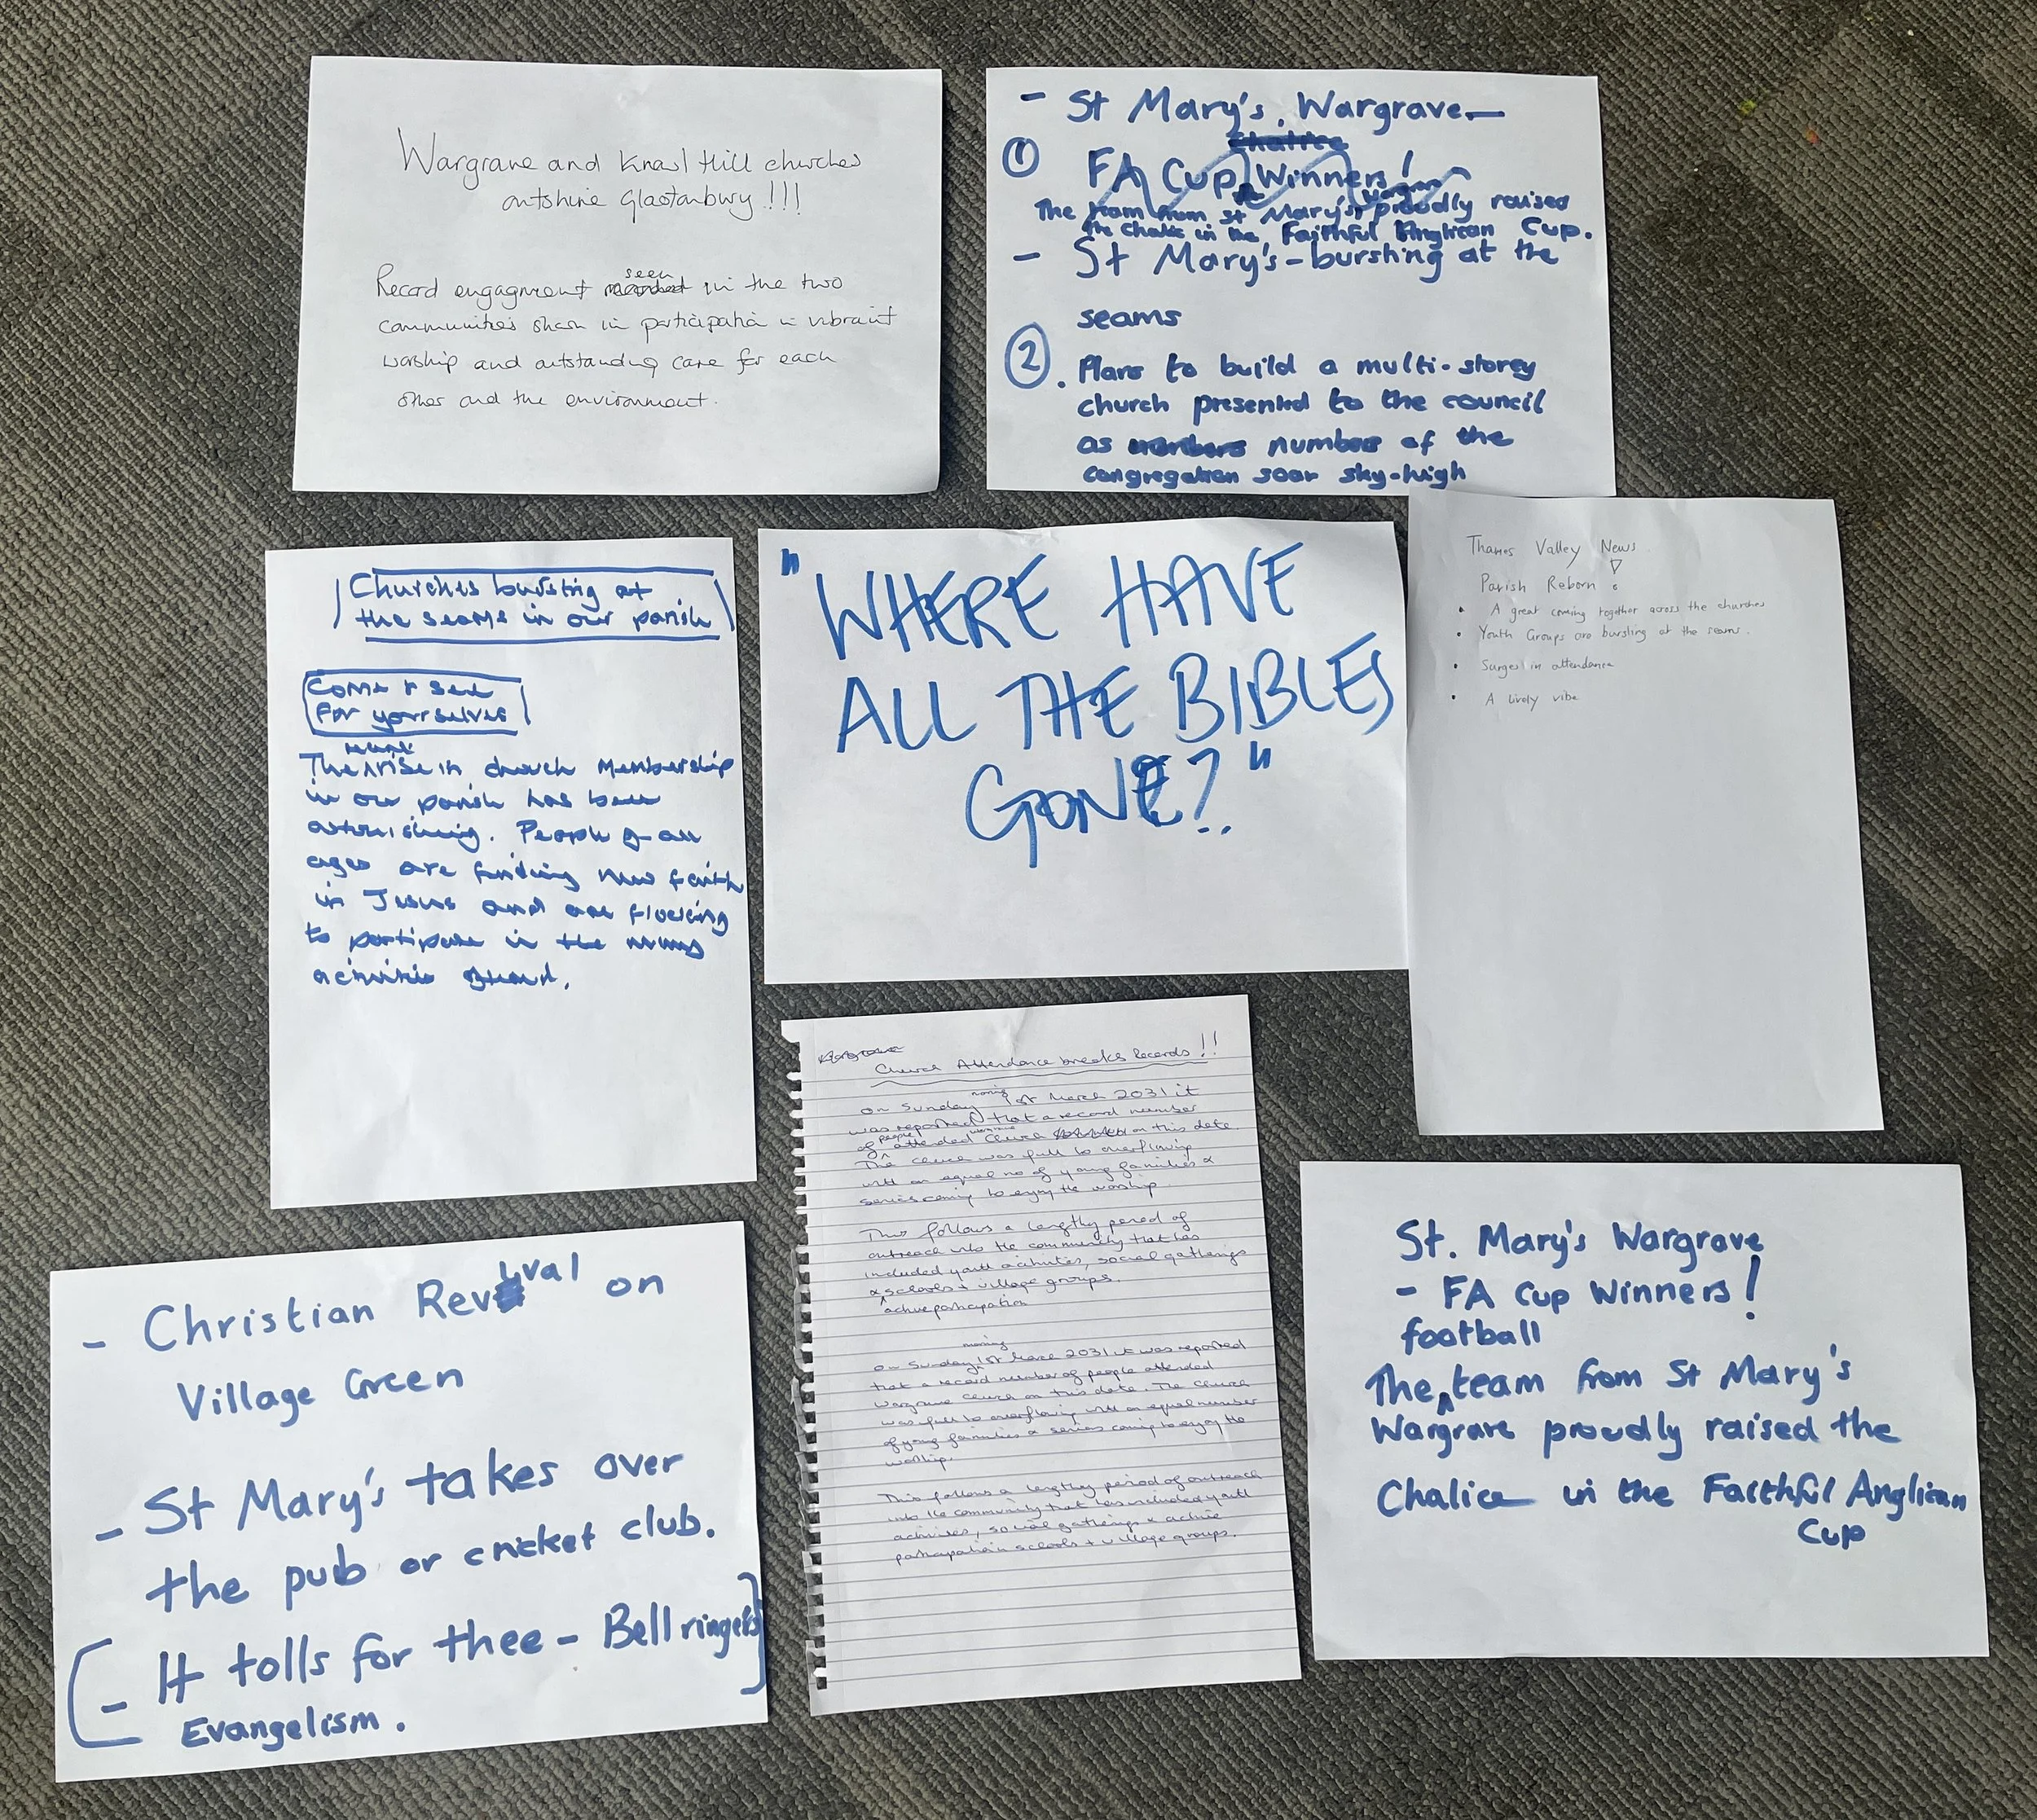 Wargrave and Knowl Hill churches
outshine Glastonbury!!!
Record engagment seen in the two
communities shown in participation in vibrant
worship and outstanding care for each
other and the environment.
- St Mary's, Wargrave—
Chalice
① FA Cup Winners!
The team from St Mary's proudly raised
the Chalice in the Faithful Anglican Cup.
- St Mary's - bursting at the
seams
② . Plans to build a multi-storey
church presented to the council
as numbers of the
congregation soar sky-high
Churches bursting at
the seams in our parish
Come & see
for yourselves
The rise in church membership
in our parish has been
astonishing. People of all
ages are finding new faith
in Jesus and are flocking
to participate in the many
activities
"WHERE HAVE
ALL THE BIBLES
GONE?"
Thames Valley News
Parish Reborn !
• A great coming together across the churches
• Youth Groups are bursting at the seams.
• Surges in attendance
• A lively vibe
Wargrave
Church Attendance breaks Records!!
On Sunday morning 1st March 2031 it
was reported that a record number
of people attended Wargrave Church on this date.
The church was full to overflowing
with an equal no of young families &
seniors coming to enjoy the worship.
This follows a lengthy period of
outreach into the community that has
included youth activities, social gatherings
& schools + village groups.
active participation
On Sunday morning 1st March 2031 it was reported
that a record number of people attended
Wargrave Church on this date. The Church
was full to overflowing with an equal number
of young families & seniors coming to enjoy the
worship.
This follows a lengthy period of outreach
into the community that has included youth
activities, social gatherings & active
participation in schools + village groups.
- Christian Revival on
Village Green
- St Mary's takes over
the pub or cricket club.
- It tolls for thee - Bell ringers
Evangelism.
St. Mary's Wargrave
- FA Cup Winners!
football
The team from St Mary's
Wargrave proudly raised the
Chalice in the Faithful Anglican
Cup